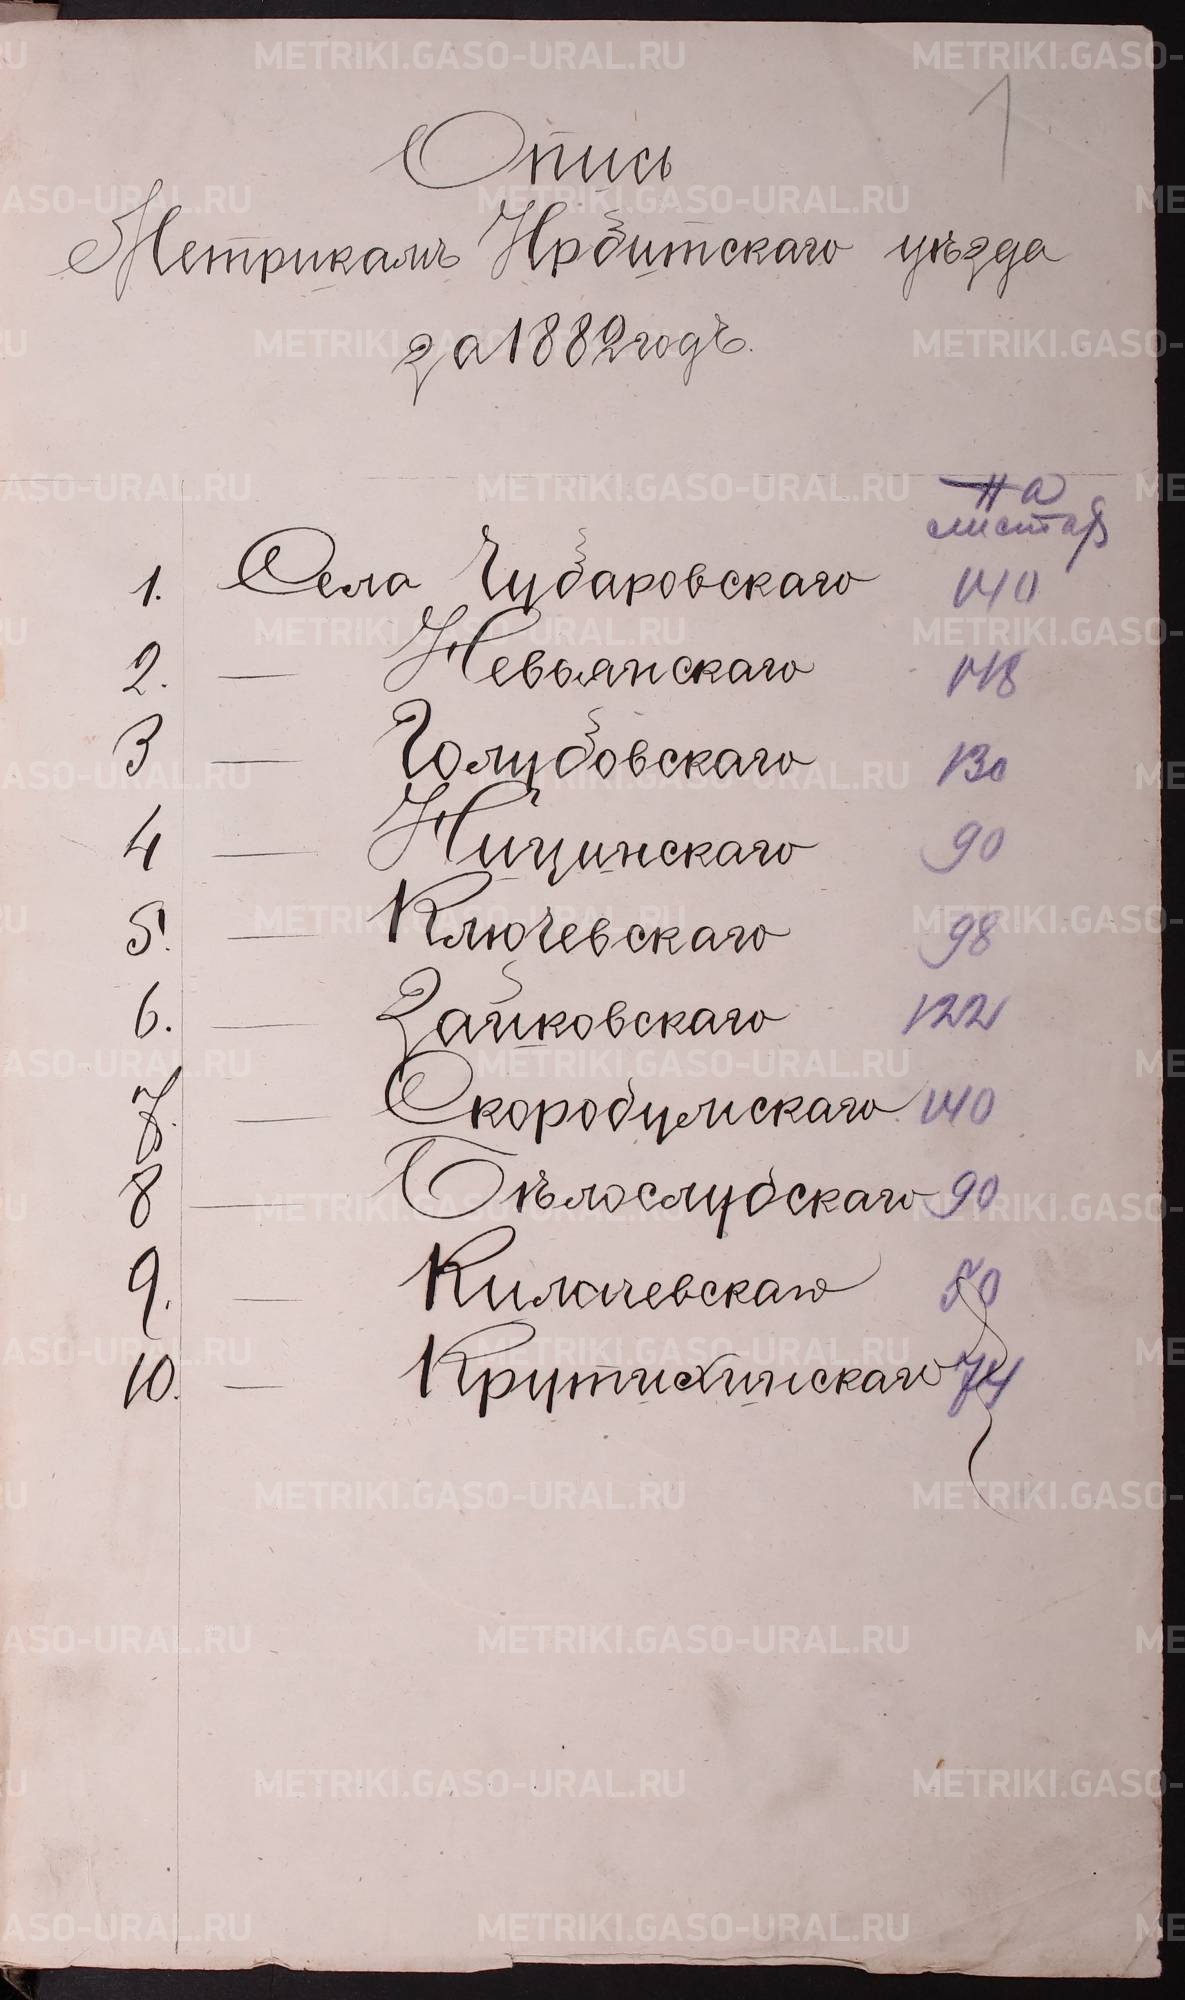 1
Опись
Метрикамъ Ирбитскаго уѣзда
за 1882 годъ.
На
листах
1. Села Чубаровскаго 140
2. — Невьянскаго 148
3 — Голубовскаго 130
4 — Ницинскаго 90
5. — Ключевскаго 98
6. — Зайковскаго 122
7. — Скородумскаго 140
8 — Бѣлослудскаго 90
9. — Килачевскаго 50
10. — Крутихинскаго 74
METRIKI.GASO-URAL.RU